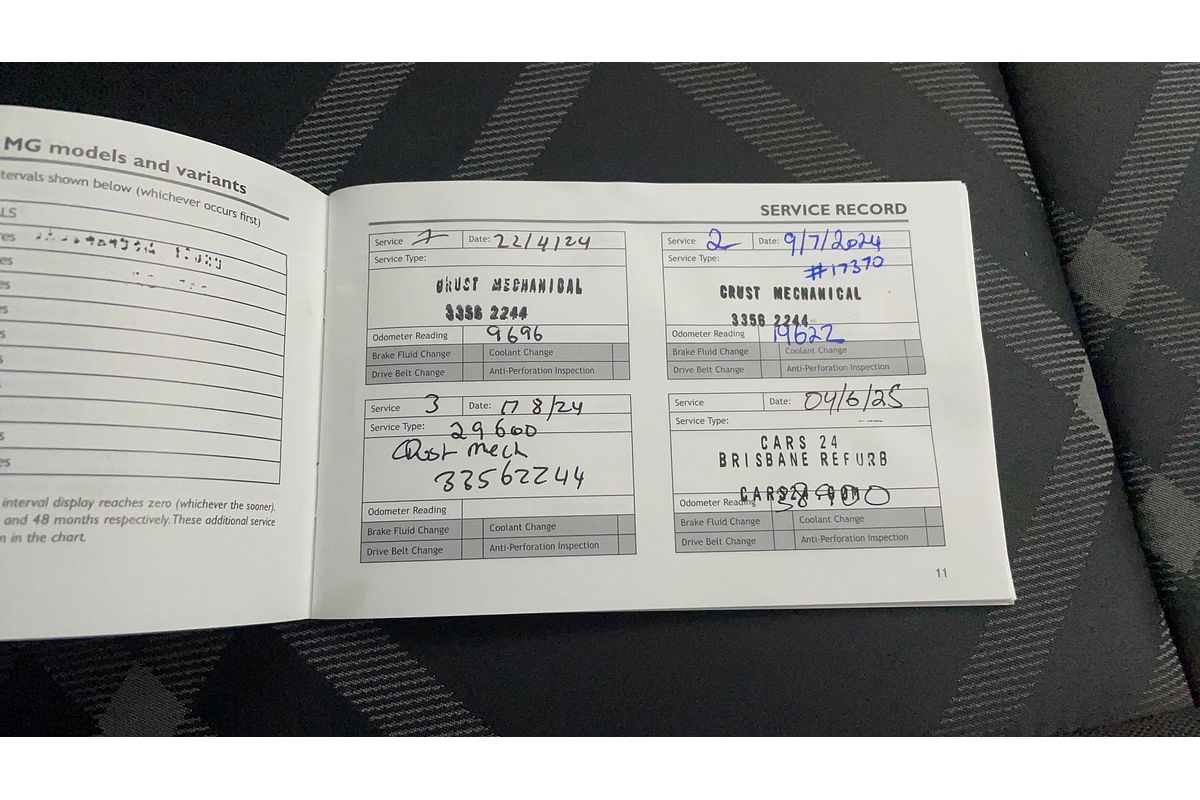 MG models and variants
tervals shown below (whichever occurs first)
LS
es
es
es
s
s
s
s
es
interval display reaches zero (whichever the sooner).
and 48 months respectively. These additional service
n in the chart.
SERVICE RECORD
Service 1 Date: 22/4/24
Service Type:
CRUST MECHANICAL
3356 2244
Odometer Reading 9696
Brake Fluid Change Coolant Change
Drive Belt Change Anti-Perforation Inspection
Service 2 Date: 9/7/2024
Service Type:
#17370
CRUST MECHANICAL
3356 2244
Odometer Reading 19622
Brake Fluid Change Coolant Change
Drive Belt Change Anti-Perforation Inspection
Service 3 Date: 17 8/24
Service Type: 29600
Crust Mech
33562244
Odometer Reading
Brake Fluid Change Coolant Change
Drive Belt Change Anti-Perforation Inspection
Service Date: 04/6/25
Service Type:
CARS 24
BRISBANE REFURB
CARS24.COM
Odometer Reading 38900
Brake Fluid Change Coolant Change
Drive Belt Change Anti-Perforation Inspection
11